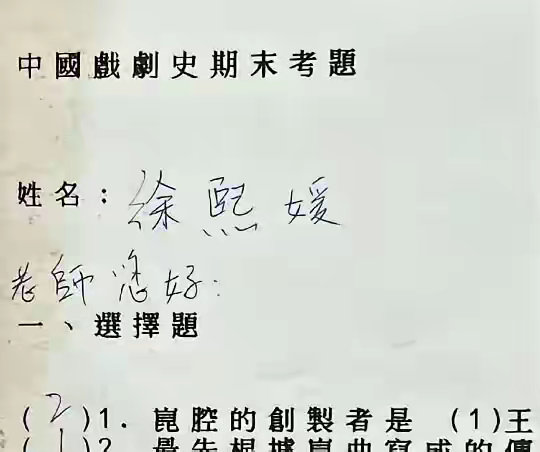 中國戲劇史期末考題
姓名：徐熙媛
老師您好：
一、選擇題
(2)1. 崑腔的創製者是 (1)王
(1)2. 最先根據崑曲寫成的傳